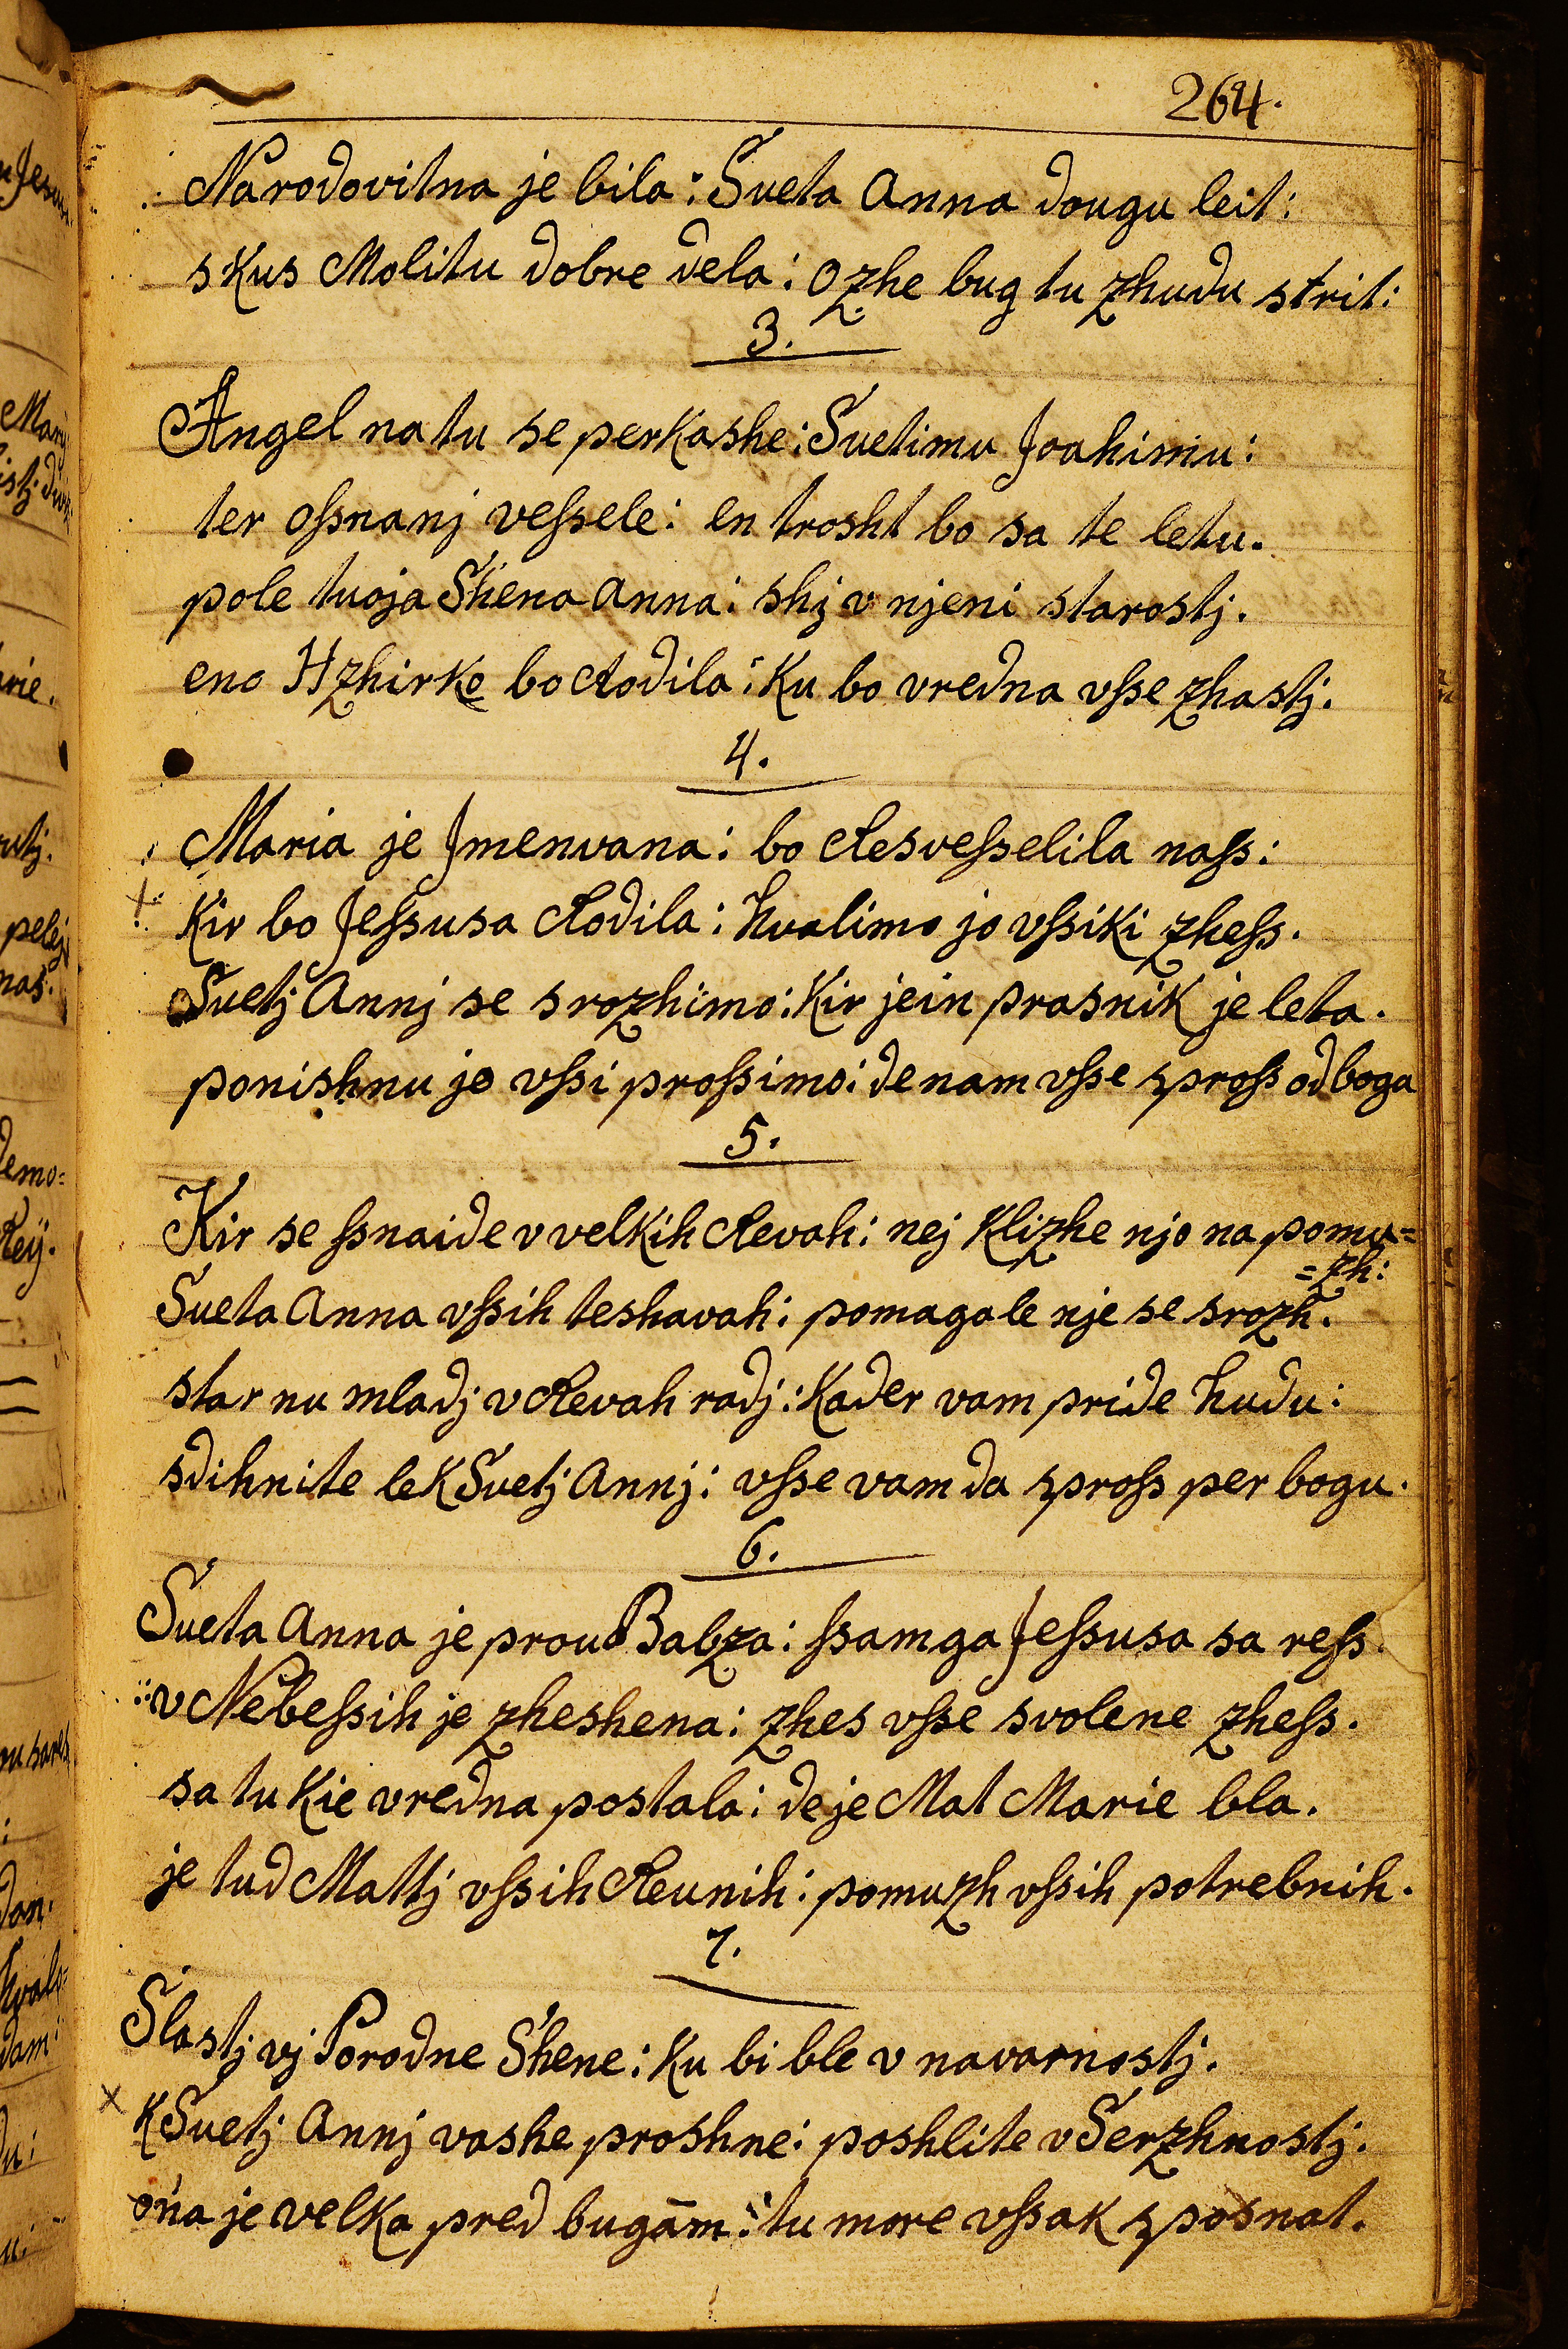 264.
Narodovitna je bila: Sveta Anna dougu leit:
skus Molitu dobre dela: ozhe bug tu zhudu strit:
3.
Angel na tu se perkashe: Svetimu Joahimu:
ter oſsnanj veſsele: en trosht bo sa te letu.
pole tvoja Shena Anna: shj v njeni starostj.
eno Hzhirko bo Rodila: Ku bo vredna vſse zhastj.
4.
Maria je Jmenvana: bo Resveſselila naſs:
Kir bo Jeſsusa Rodila: hvalimo jo vſsiki zheſs.
Svetj Annj se srozhimo: Kir jein prasnik je leta.
ponishnu jo vſsi proſsimo: de nam vſse sproſs od boga
5.
Kir se ſsnaide v velkih Revah: nej Klizhe njo na pomu=
=zh:
Sveta Anna vſsih teshavah: pomaga le nje se srozh.
star nu mladj v Revah radj: Kader vam pride hudu:
sdihnite le K Svetj Annj: vſse vam da sproſs per bogu.
6.
Sveta Anna je prou Babza: ſsamga Jeſsusa sa reſs.
v Nebeſsih je zheshena: zhes vſse svolene zheſs.
sa tu Kie vredna postala: de je Mat Marie bla.
je tud Mattj vſsih Reunih: pomuzh vſsih potrebnih.
7.
Slastj vj Porodne Shene: Ku bi ble v navarnostj.
K Svetj Annj vashe proshne: poshlite v Serzhnostj.
ona je velka pred bugam: tu more vſsak sposnat.